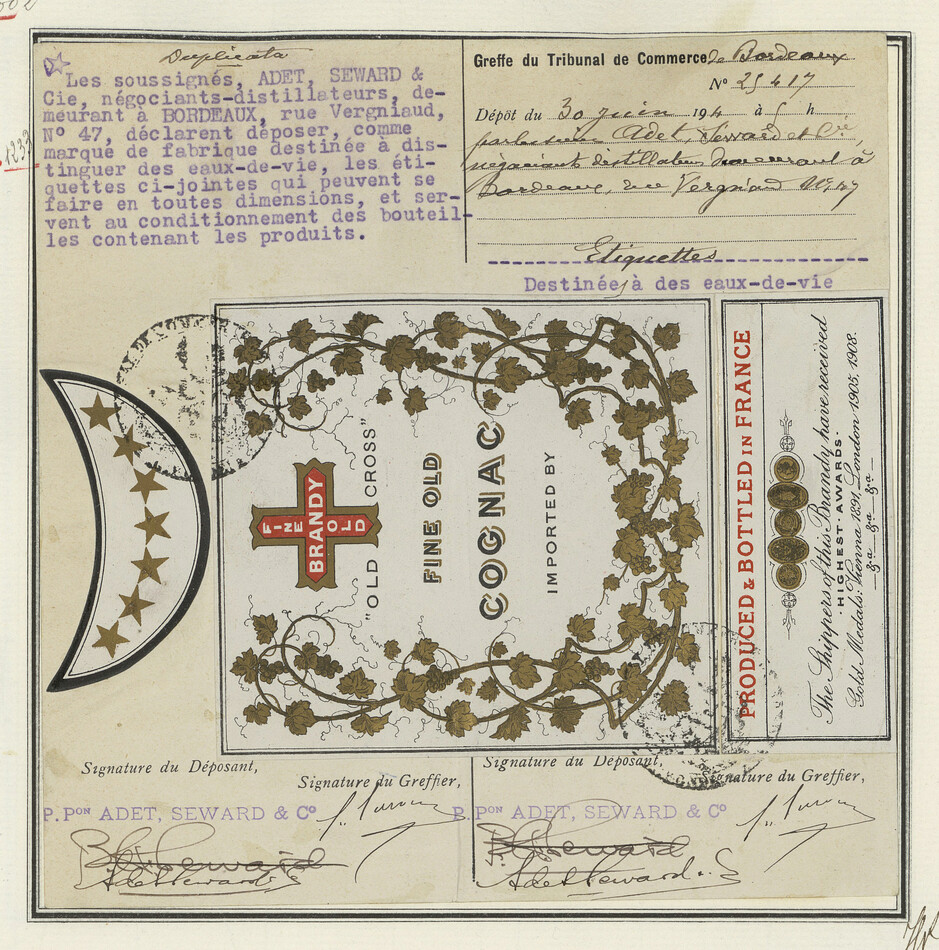 Duplicata
Les soussignés, ADET, SEWARD &
Cie, négociants-distillateurs, de-
meurant à BORDEAUX, rue Vergniaud,
N° 47, déclarent déposer, comme
marque de fabrique destinée à dis-
tinguer des eaux-de-vie, les éti-
quettes ci-jointes qui peuvent se
faire en toutes dimensions, et ser-
vent au conditionnement des bouteil-
les contenant les produits.
1233
Greffe du Tribunal de Commerce de Bordeaux
N° 25417
Dépôt du 30 juin 194 à 5 h
par Adet, Seward et Cie
négociants distillateurs demeurant à
Bordeaux, rue Vergniaud N° 47
Etiquettes
Destinées à des eaux-de-vie
FINE OLD
BRANDY
"OLD CROSS"
FINE OLD
COGNAC
IMPORTED BY
PRODUCED & BOTTLED IN FRANCE
The Shippers of this Brandy have received
·HIGHEST·AWARDS·
Gold Medals: Vienna 1891, London 1905, 1908.
&a &a &a
Signature du Déposant,
Signature du Greffier,
P. PON ADET, SEWARD & Co
Seward
Adet Seward & C
Signature du Déposant,
Signature du Greffier,
P. PON ADET, SEWARD & Co
Seward
Adet Seward & C